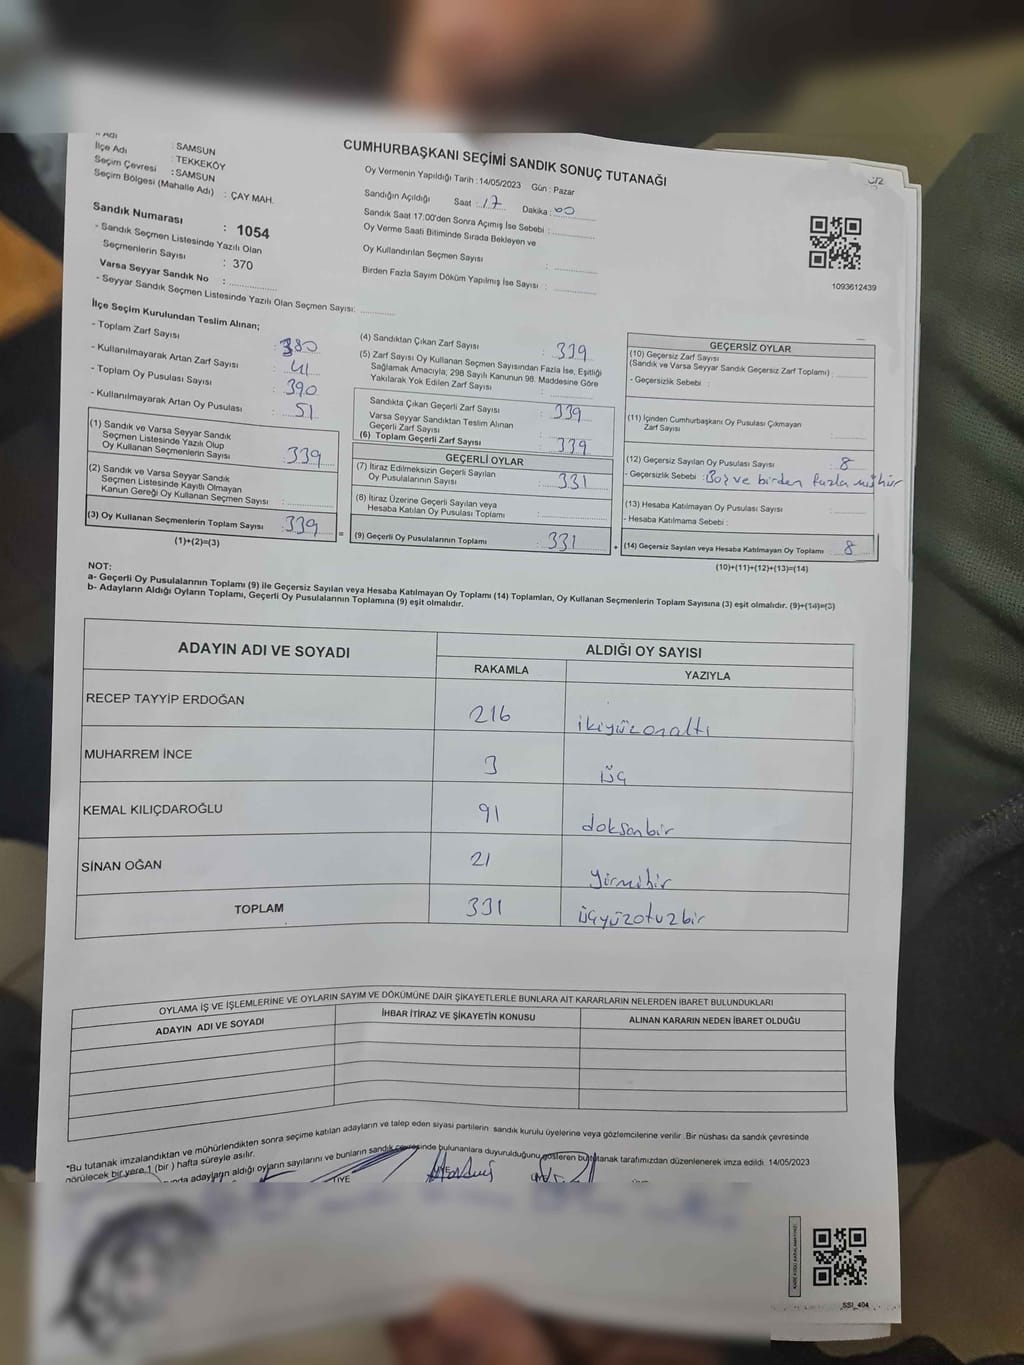 CUMHURBAŞKANI SEÇİMİ SANDIK SONUÇ TUTANAĞI
İlçe Adı : SAMSUN
Seçim Çevresi : TEKKEKÖY
: SAMSUN
Seçim Bölgesi (Mahalle Adı) : ÇAY MAH.
Oy Vermenin Yapıldığı Tarih : 14/05/2023 Gün : Pazar
Sandığın Açıldığı Saat : 17 Dakika : 00
Sandık Saat 17:00'den Sonra Açımış İse Sebebi :
Oy Verme Saati Bitiminde Sırada Bekleyen ve
Oy Kullandırılan Seçmen Sayısı :
Birden Fazla Sayım Döküm Yapılmış İse Sayısı :
1093612439
Sandık Numarası : 1054
- Sandık Seçmen Listesinde Yazılı Olan
Seçmenlerin Sayısı : 370
Varsa Seyyar Sandık No :
- Seyyar Sandık Seçmen Listesinde Yazılı Olan Seçmen Sayısı:
İlçe Seçim Kurulundan Teslim Alınan;
- Toplam Zarf Sayısı : 380
- Kullanılmayarak Artan Zarf Sayısı : 41
- Toplam Oy Pusulası Sayısı : 390
- Kullanılmayarak Artan Oy Pusulası : 51
(1) Sandık ve Varsa Seyyar Sandık
Seçmen Listesinde Yazılı Olup
Oy Kullanan Seçmenlerin Sayısı : 339
(2) Sandık ve Varsa Seyyar Sandık
Seçmen Listesinde Kayıtlı Olmayan
Kanun Gereği Oy Kullanan Seçmen Sayısı :
(3) Oy Kullanan Seçmenlerin Toplam Sayısı : 339
(1)+(2)=(3)
(4) Sandıktan Çıkan Zarf Sayısı : 339
(5) Zarf Sayısı Oy Kullanan Seçmen Sayısından Fazla İse, Eşitliği
Sağlamak Amacıyla, 298 Sayılı Kanunun 98. Maddesine Göre
Yakılarak Yok Edilen Zarf Sayısı :
Sandıkta Çıkan Geçerli Zarf Sayısı : 339
Varsa Seyyar Sandıktan Teslim Alınan
Geçerli Zarf Sayısı :
(6) Toplam Geçerli Zarf Sayısı : 339
GEÇERLİ OYLAR
(7) İtiraz Edilmeksizin Geçerli Sayılan
Oy Pusulalarının Sayısı : 331
(8) İtiraz Üzerine Geçerli Sayılan veya
Hesaba Katılan Oy Pusulası Toplamı :
= (9) Geçerli Oy Pusulalarının Toplamı : 331
GEÇERSİZ OYLAR
(10) Geçersiz Zarf Sayısı
(Sandık ve Varsa Seyyar Sandık Geçersiz Zarf Toplamı) :
- Geçersizlik Sebebi :
(11) İçinden Cumhurbaşkanı Oy Pusulası Çıkmayan
Zarf Sayısı :
(12) Geçersiz Sayılan Oy Pusulası Sayısı : 8
- Geçersizlik Sebebi : Boş ve birden fazla mühür
(13) Hesaba Katılmayan Oy Pusulası Sayısı :
- Hesaba Katılmama Sebebi :
+ (14) Geçersiz Sayılan veya Hesaba Katılmayan Oy Toplamı : 8
(10)+(11)+(12)+(13)=(14)
NOT:
a- Geçerli Oy Pusulalarının Toplamı (9) ile Geçersiz Sayılan veya Hesaba Katılmayan Oy Toplamı (14) Toplamları, Oy Kullanan Seçmenlerin Toplam Sayısına (3) eşit olmalıdır. (9)+(14)=(3)
b- Adayların Aldığı Oyların Toplamı, Geçerli Oy Pusulalarının Toplamına (9) eşit olmalıdır.
ADAYIN ADI VE SOYADI ALDIĞI OY SAYISI
RAKAMLA YAZIYLA
RECEP TAYYİP ERDOĞAN 216 ikiyüzonaltı
MUHARREM İNCE 3 üç
KEMAL KILIÇDAROĞLU 91 doksanbir
SİNAN OĞAN 21 yirmibir
TOPLAM 331 üçyüzotuzbir
OYLAMA İŞ VE İŞLEMLERİNE VE OYLARIN SAYIM VE DÖKÜMÜNE DAİR ŞİKAYETLERLE BUNLARA AİT KARARLARIN NELERDEN İBARET BULUNDUKLARI
ADAYIN ADI VE SOYADI İHBAR İTİRAZ VE ŞİKAYETİN KONUSU ALINAN KARARIN NEDEN İBARET OLDUĞU
"Bu tutanak imzalandıktan ve mühürlendikten sonra seçime katılan adayların ve talep eden siyasi partilerin sandık kurulu üyelerine veya gözlemcilerine verilir. Bir nüshası da sandık çevresinde
görülecek bir yere 1 (bir) hafta süreyle asılır.
adayların aldığı oyların sayılarını ve bunların sandık çevresinde bulunanlara duyurulduğunu gösteren bu tutanak tarafımızdan düzenlenerek imza edildi. 14/05/2023
ÜYE
SSI_404